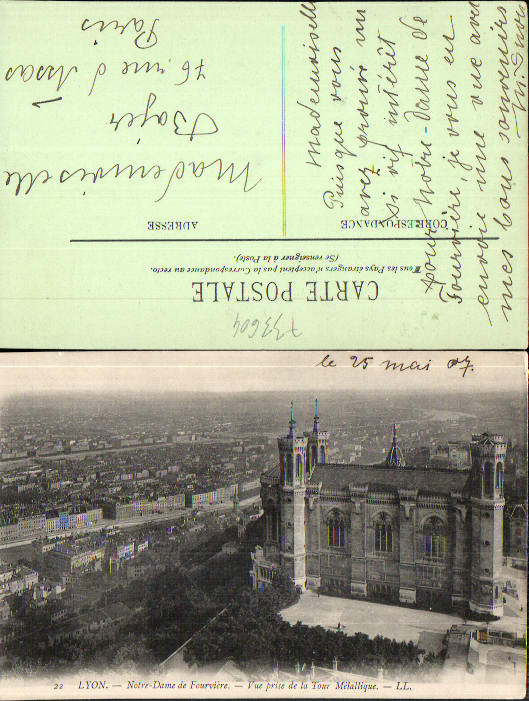 CARTE POSTALE
Tous les Pays étrangers n'acceptent pas la Correspondance au recto.
(Se renseigner à la Poste).
CORRESPONDANCE
ADRESSE
Mademoiselle
Puisque vous
avez prouvé un
si vif intérêt
pour Notre-Dame de
Fourvière, je vous en
envoie une vue avec
mes bons souvenirs
Mademoiselle
Bajer
76, rue d'Assas
Paris
733604
le 25 mai 07.
22 LYON. — Notre-Dame de Fourvière. — Vue prise de la Tour Métallique. — LL.